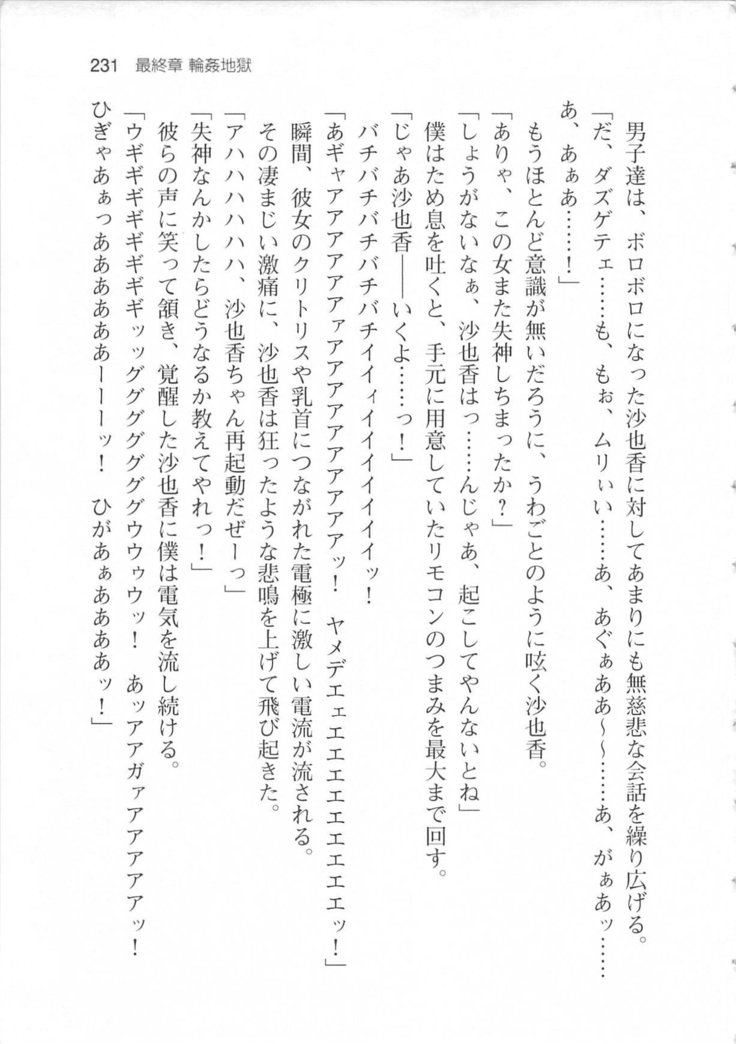 231 最終章 輪姦地獄
男子達は、ボロボロになった沙也香に対してあまりにも無慈悲な会話を繰り広げる。
「だ、ダズゲテェ……も、もぉ、ムリぃい……あ、あぐぁああ～～……あ、がぁあッ……
あ、あぁあ……！」
もうほとんど意識が無いだろうに、うわごとのように呟く沙也香。
「ありゃ、この女また失神しちまったか？」
「しょうがないなぁ、沙也香はっ……んじゃあ、起こしてやんないとね」
僕はため息を吐くと、手元に用意していたリモコンのつまみを最大まで回す。
「じゃあ沙也香――いくよ……っ！」
バチバチバチバチバチイイィイイイイイイイッ！
「あギャアアアアアアァアアアアアアアアアアッ！　ヤメデエェエエエエエエエエエッ！」
瞬間、彼女のクリトリスや乳首につながれた電極に激しい電流が流される。
その凄まじい激痛に、沙也香は狂ったような悲鳴を上げて飛び起きた。
「アハハハハハハ、沙也香ちゃん再起動だぜーっ」
「失神なんかしたらどうなるか教えてやれっ！」
彼らの声に笑って頷き、覚醒した沙也香に僕は電気を流し続ける。
「ウギギギギギギギギッッグググググググウウゥウッ！　あッアアガァアアアアアッ！
ひぎゃあぁっああああああーーーッ！　ひがあぁあああああッ！」